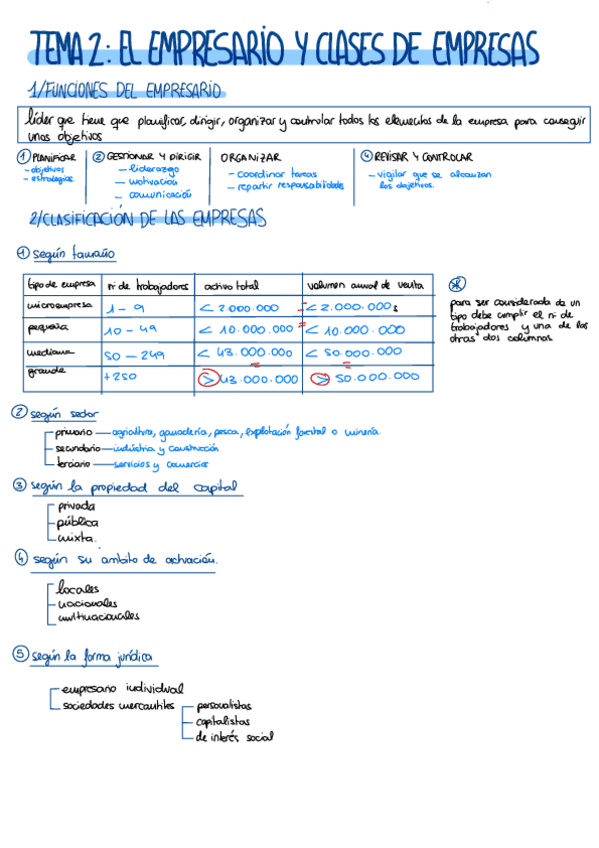 TEMA 2: EL EMPRESARIO Y CLASES DE EMPRESAS
1/FUNCIONES DEL EMPRESARIO
líder que tiene que planificar, dirigir, organizar y controlar todos los elementos de la empresa para conseguir
unos objetivos
① PLANIFICAR
- objetivos
- estrategias
② GESTIONAR Y DIRIGIR
- liderazgo
- motivación
- comunicación
ORGANIZAR
- coordinar tareas
- repartir responsabilidades
④ REVISAR Y CONTROLAR
- vigilar que se alcanzan
los objetivos
2/CLASIFICACIÓN DE LAS EMPRESAS
① según tamaño
tipo de empresa | nº de trabajadores | activo total | volumen anual de venta
microempresa | 1 - 9 | < 2.000.000 | = < 2.000.000 s
pequeña | 10 - 49 | < 10.000.000 | = < 10.000.000
mediana | 50 - 249 | < 43.000.000 | < 50.000.000
grande | +250 | > 43.000.000 | > 50.000.000
*
para ser considerada de un
tipo debe cumplir el nº de
trabajadores y una de las
otras dos columnas
② según sector
primario — agricultura, ganadería, pesca, explotación forestal o minería.
secundario — indústria y construcción
terciario — servicios y comercios
③ según la propiedad del capital
privada
pública
mixta.
④ según su ambito de actuación.
locales
nacionales
multinacionales
⑤ según la forma jurídica
empresario individual
sociedades mercantiles
personalistas
capitalistas
de interés social